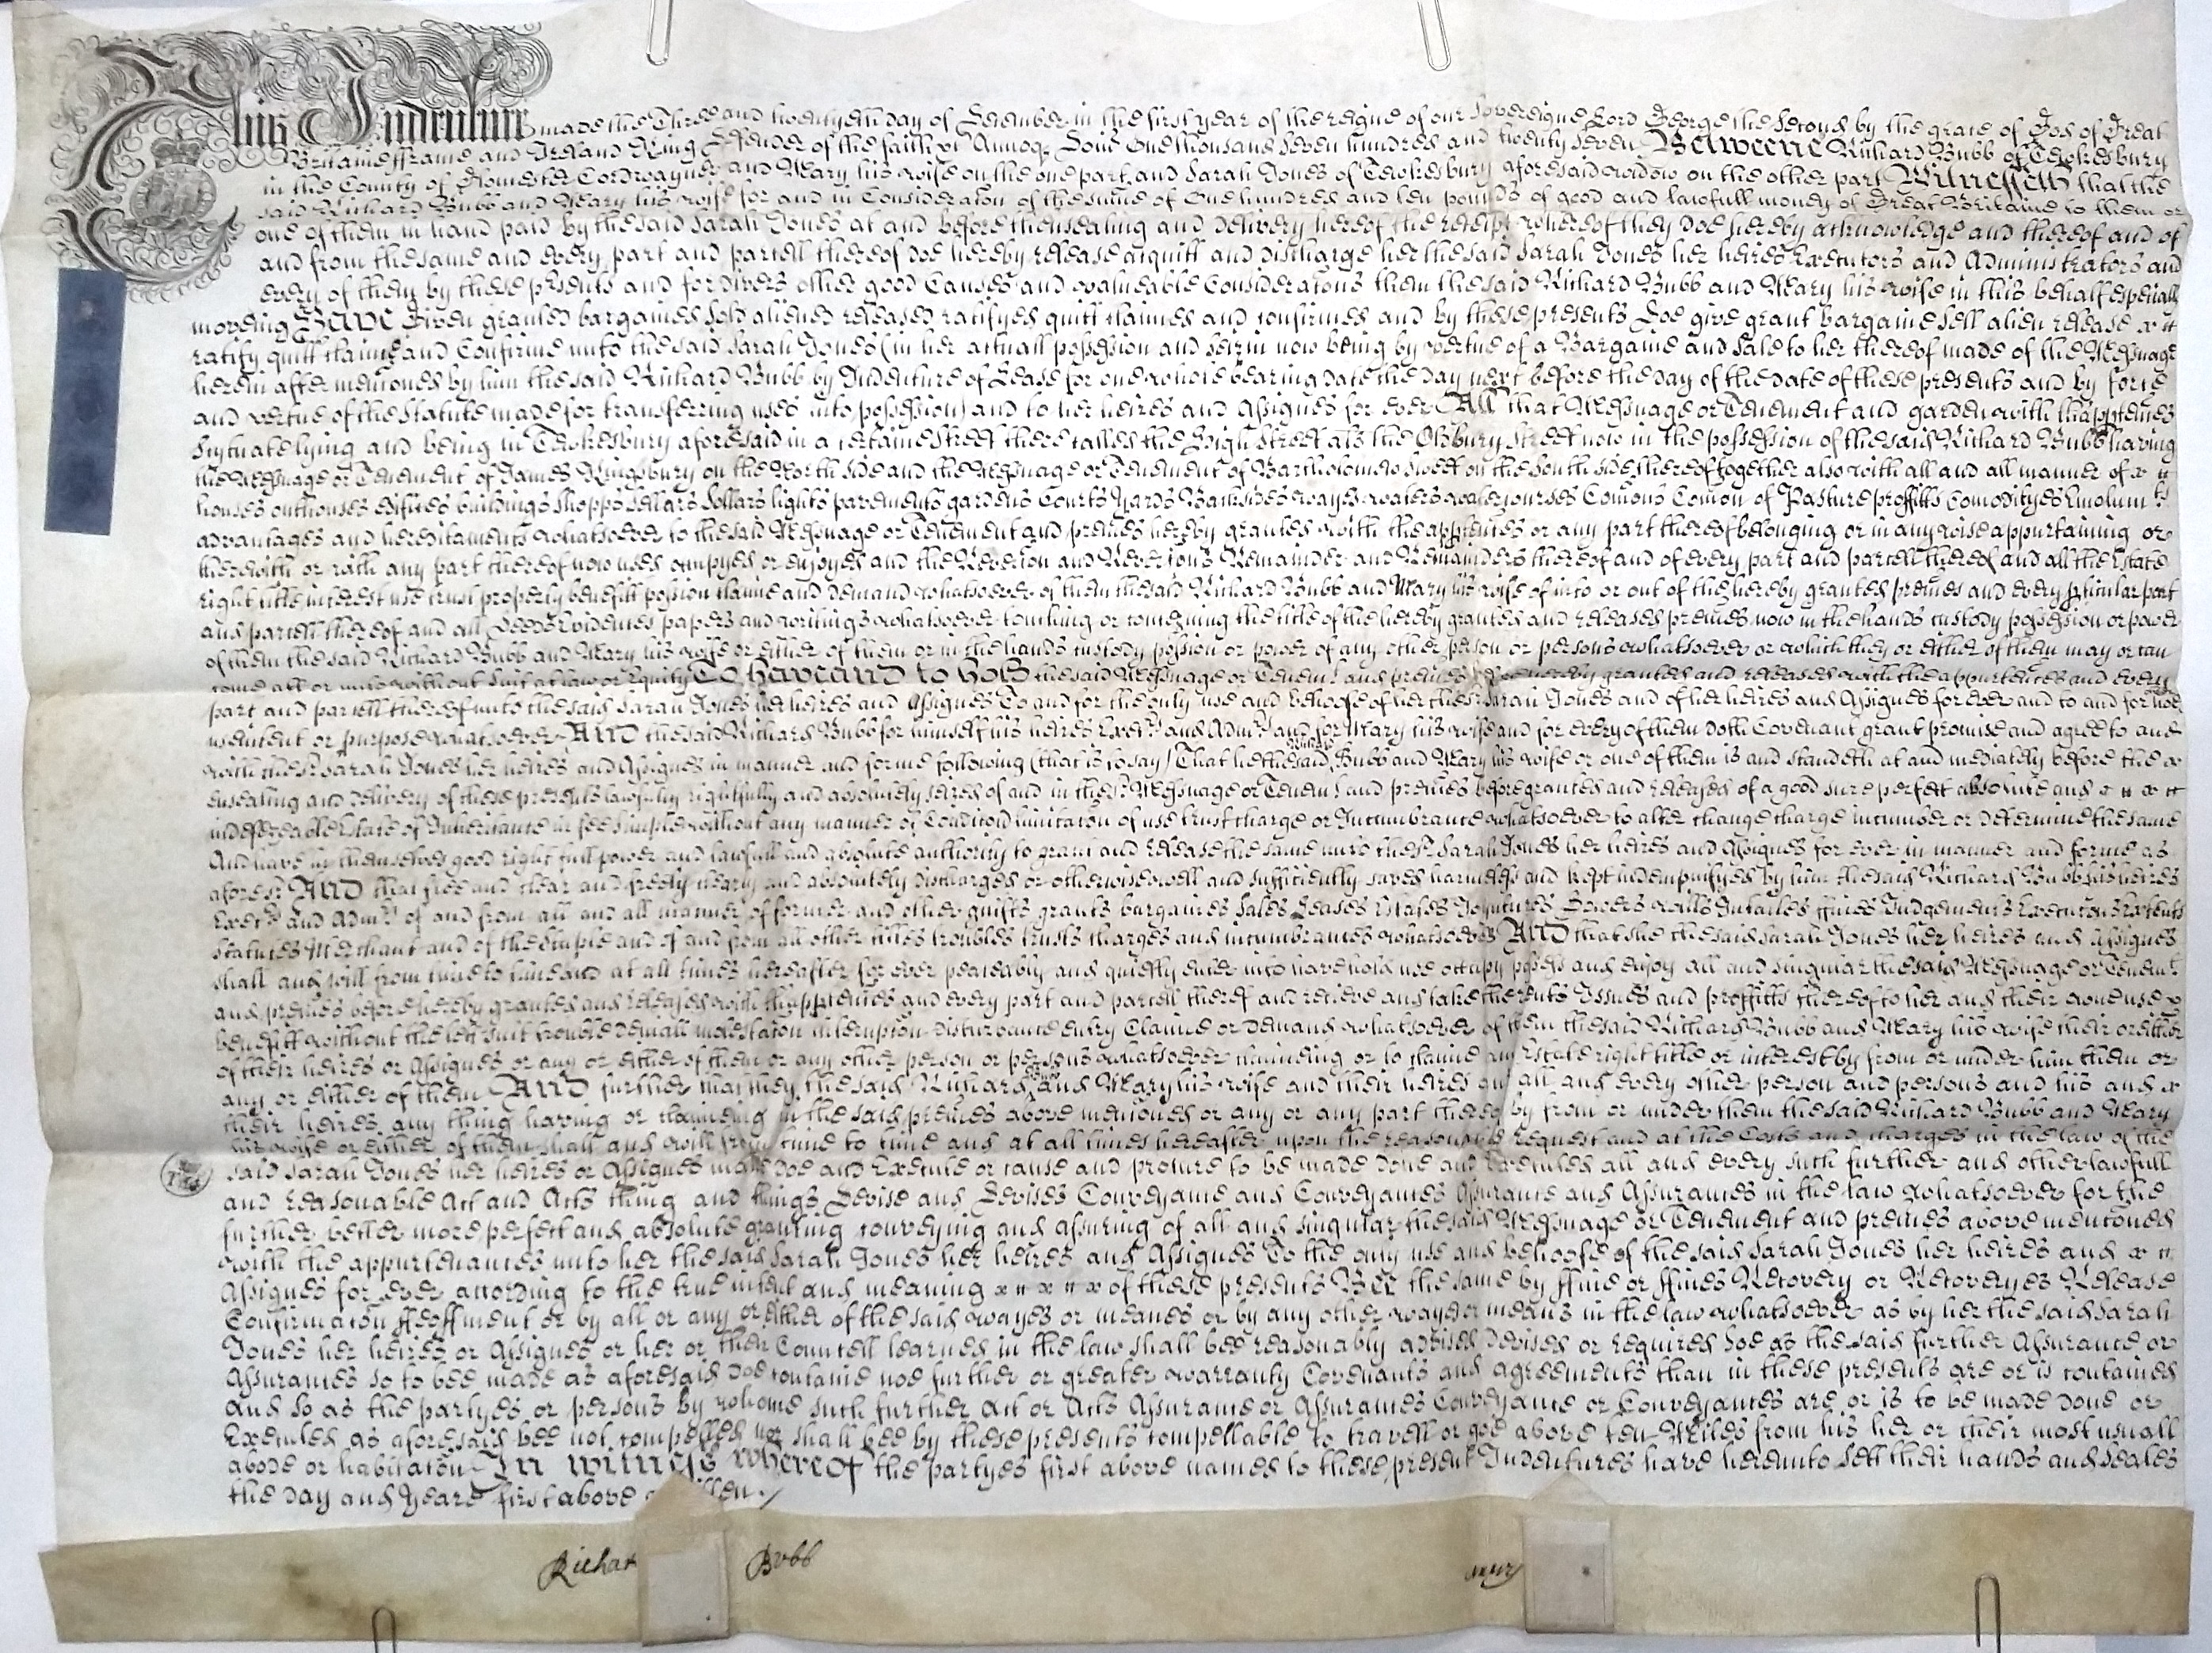 This Indenture made the Three and twentyeth day of December in the first year of the reigne of our Sovereigne Lord George the Second by the grace of God of Great
Britaine ffrance and Ireland King Defender of the faith &c Annoq Dom One thousand seven hundred and twenty seven Betweene Richard Bubb of Tewkesbury
in the County of Gloucester Cordwayner and Mary his wife on the one part and Sarah Jones of Tewkesbury aforesaid widow on the other part Witnesseth that the
said Richard Bubb and Mary his wife for and in Consideraton of the summe of One hundred and ten pounds of good and lawfull money of Great Britaine to them or
one of them in hand paid by the said Sarah Jones at and before thensealing and delivery hereof the receipt whereof they doe hereby acknowledge and thereof and of
and from the same and every part and parcell thereof doe hereby release acquitt and discharge her the said Sarah Jones her heires Executors and Administrators and
every of them by these presents and for divers other good Causes and valueable Consideratons them the said Richard Bubb and Mary his wife in this behalf especially
moveing Have Given granted bargained sold aliened released ratifyed quitt claimed and confirmed and by these presents Doe give grant bargaine sell alien release
ratify quitt claime and Confirme unto the said Sarah Jones (in her actuall possession and seizin now being by vertue of a Bargaine and Sale to her thereof made of the Messuage
herein after mentoned by him the said Richard Bubb by Indenture of Lease for one whole bearing date the day next before the day of the date of these presents and by force
and vertue of the Statute made for transferring uses into possession) and to her heires and Assignes for ever All that Messuage or Tenement and garden with thapptences
Scytuate lying and being in Tewkesbury aforesaid in a certaine Street there called the High Street als the Oldbury Street now in the possession of the said Richard Bubb having
the Messuage or Tenement of James Kingsbury on the North side and the Messuage or Tenement of Bartholomew Sweet on the South side thereof together also with all and all manner of
houses outhouses edifices buildings shopps Sellars Sollars lights pavements gardens Courts Yards Backsides wayes waters watercourses Comons Comon of Pasture proffitts Comodityes Emolumts
advantages and hereditaments whatsoever to the said Messuage or Tenement and premes hereby granted with the apptences or any part thereof belonging or in any wise appurtaining or
therewith or with any part thereof now used occupyed or enjoyed and the Revercon and Revercons Remainder and Remainders thereof and of every part and parcell thereof and all the Estate
right title interest use trust property benefitt possion claime and demand whatsoever of them the said Richard Bubb and Mary his wife of into or out of the hereby granted premes and every pticular part
and parcell thereof and all Deeds Evidences papers and writings whatsoever touching or concerning the title of the hereby granted and released premes now in the hands custody possession or power
of them the said Richard Bubb and Mary his wife or either of them or in the hands custody possion or power of any other person or persons whatsoever or which they or either of them may or can
come att or unto without Suit at law or Equity To have and to hold the said Messuage or Tenemt and premes hereby granted and released with the appurtences and every
part and parcell thereof unto the said Sarah Jones her heires and Assignes To and for the only use and behoofe of her the sd Sarah Jones and of her heires and Assignes for ever and to and for noe
use intent or purpose whatsoever And the said Richard Bubb for himself his heires Exectrs and Admrs and for Mary his wife and for every of them doth Covenant grant promise and agree to and
with the sd Sarah Jones her heires and Assignes in manner and forme following (that is to say) That he the said Richard Bubb and Mary his wife or one of them is and standeth at and mediately before the
ensealing and delivery of these presents lawfully rightfully and absolutely seized of and in the sd Messuage or Tenemt and premes before granted and released of a good sure perfect absolute and
indefezeable Estate of Inheritance in fee simple without any manner of Conditon limitaton of use trust charge or Incumbrance whatsoever to alter change charge incumber or determine the same
And have in themselves good right full power and lawfull and absolute authority to grant and release the same unto the sd Sarah Jones her heires and Assignes for ever in manner and forme as
aforesd And that free and clear and freely clearly and absolutely discharged or otherwise well and sufficiently saved harmless and kept indempnifyed by him the said Richard Bubb his heires
Exectrs and Admrs of and from all and all manner of former and other guifts grants bargaines Sales Leases Estates Joyntures Dowers wills Intailes ffines Judgements Executons Extents
Statutes Merchant and of the Staple and of and from all other titles troubles trusts charges and incumbrances whatsoever And that she the said Sarah Jones her heires and Assignes
shall and will from time to time and at all times hereafter for ever peaceably and quietly enter into have hold use occupy possess and enjoy all and singular the said Messuage or Tenemt
and premes before hereby granted and released with thapptences and every part and parcell thereof and receive and take the rents Issues and proffitts thereof to her and their owne use
benefitt without the lett suit trouble deniall molestaton interupton disturbance entry Claime or demand whatsoever of them the said Richard Bubb and Mary his wife their or either
of their heires or Assignes or any or either of them or any other person or persons whatsoever claiming or to claime any Estate right title or interest by from or under him them or
any or either of them And further that they the said Richard Bubb and Mary his wife and their heires and all and every other person and persons and his and
their heires any thing having or claiming in the said premes above mentoned or any or any part thereof by from or under them the said Richard Bubb and Mary
his wife or either of them shall and will from time to time and at all times hereafter upon the reasonable request and at the Costs and charges in the law of the
said Sarah Jones her heires or Assignes make doe and Execute or cause and procure to be made done and Executed all and every such further and other lawfull
and reasonable Act and Acts thing and things Devise and Devises Conveyance and Conveyances Assurance and Assurances in the law whatsoever for the
further better more perfect and absolute granting conveying and assuring of all and singular the said Messuage or Tenement and premes above mentoned
with the appurtenances unto her the said Sarah Jones her heires and Assignes To the only use and behoofe of the said Sarah Jones her heires and
Assignes for ever according to the true intent and meaning of these presents Bee the same by ffine or ffines Recovery or Recoveryes Release
Confirmaton ffeoffment or by all or any or either of the said wayes or meanes or by any other wayes or means in the law whatsoever as by her the said Sarah
Jones her heires or Assignes or her or their Councell learned in the law shall bee reasonably advised devised or required Soe as the said further Assurance or
Assurances so to bee made as aforesaid doe containe noe further or greater warranty Covenants and agreements than in these presents are or is contained
and so as the partyes or persons by whome such further Act or Acts Assurance or Assurances Conveyance or Conveyances are or is to be made done or
Executed as aforesaid bee not compelled nor shall bee by these presents compellable to travell or goe above ten Miles from his her or their most usuall
abode or habitaton In witness whereof the partyes first above named to these present Indentures have hereunto sett their hands and seales
the day and Yeare first above written
Richard Bubb